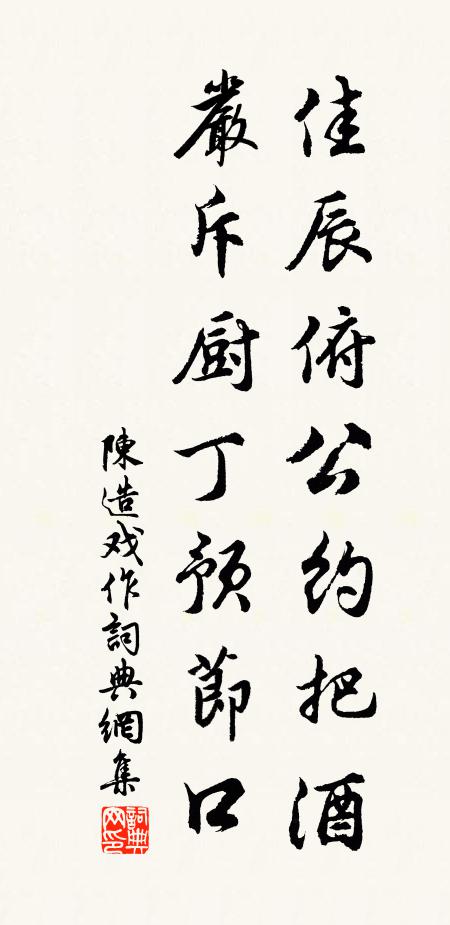 佳辰俯公約把酒
嚴斥厨丁預節口
陳造戏作詞典網集
詞典网印